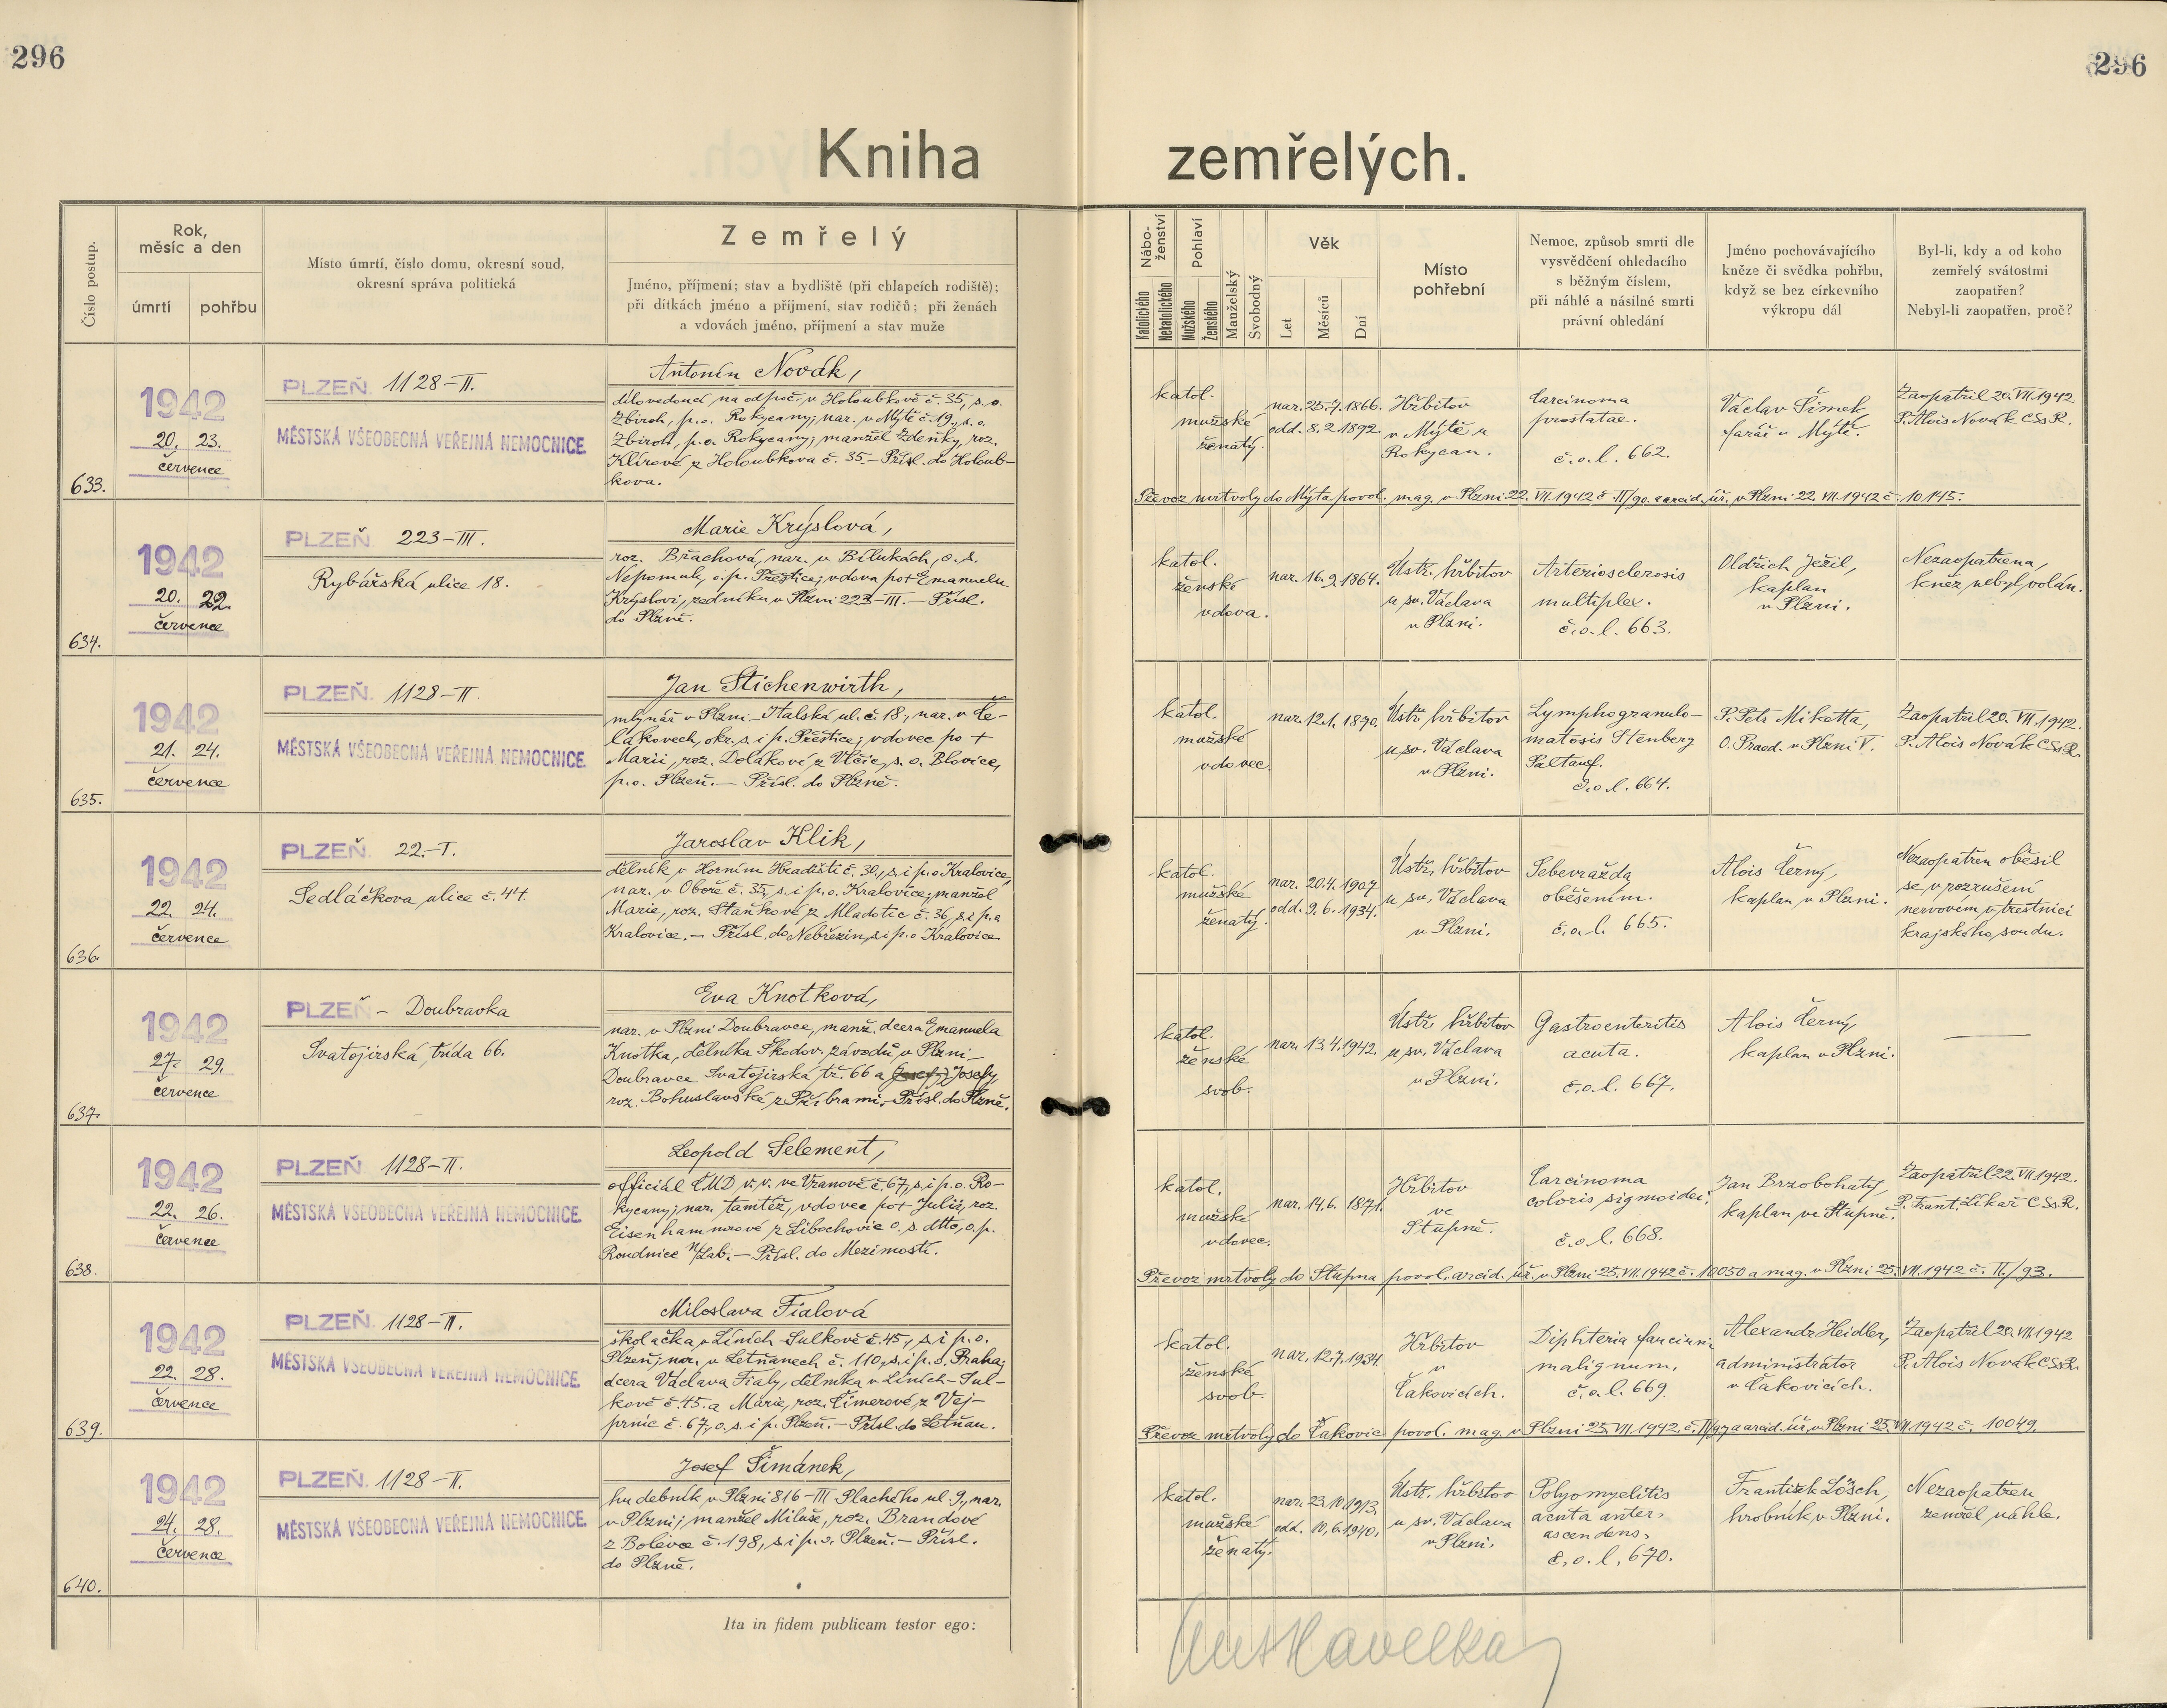 296
296
Kniha zemřelých.
Číslo postup.
Rok, měsíc a den
úmrtí
pohřbu
Místo úmrtí, číslo domu, okresní soud,
okresní správa politická
Zemřelý
Jméno, příjmení; stav a bydliště (při chlapcích rodiště);
při dítkách jméno a příjmení, stav rodičů; při ženách
a vdovách jméno, příjmení a stav muže
Nábo-
ženství
Katolického
Nekatolického
Pohlaví
Mužského
Ženského
Manželský
Svobodný
Věk
Let
Měsíců
Dní
Místo
pohřební
Nemoc, způsob smrti dle
vysvědčení ohledacího
s běžným číslem,
při náhlé a násilné smrti
právní ohledání
Jméno pochovávajícího
kněze či svědka pohřbu,
když se bez církevního
výkropu dál
Byl-li, kdy a od koho
zemřelý svátostmi
zaopatřen?
Nebyl-li zaopatřen, proč?
633.
1942
20. 23.
července
PLZEŇ 1128-II.
MĚSTSKÁ VŠEOBECNÁ VEŘEJNÁ NEMOCNICE.
Antonín Novák,
dílovedoucí na odpoč. v Holoubkově č. 35, s. o.
Zbiroh, p. o. Rokycany; nar. v Mýtě č. 19, s. o.
Zbiroh, p. o. Rokycany; manžel Zdeňky, roz.
Klírové z Holoubkova č. 35. — Přísl. do Holoub-
kova.
katol.
mužské
ženatý.
nar. 25.7.1866.
odd. 8.2.1892.
Hřbitov
v Mýtě u
Rokycan.
Carcinoma
prostatae.
č.o.l. 662.
Václav Šimek,
farář v Mýtě.
Zaopatřil 20. VII. 1942
P. Alois Novák CSsR.
Převoz mrtvoly do Mýta povol. mag. v Plzni 22. VII. 1942 č. II/90. a arcid. úř. v Plzni 22. VII. 1942 č. 10145.
634.
1942
20. 22.
července
PLZEŇ 223-III.
Rybářská ulice 18.
Marie Krýslová,
roz. Břachová, nar. v Bílukách, o. s.
Nepomuk, o. p. Přeštice; vdova po + Emanuelu
Krýslovi, zedníku v Plzni 223-III. — Přísl.
do Plzně.
katol.
ženské
vdova.
nar. 16.9.1864.
Ústř. hřbitov
u sv. Václava
v Plzni.
Arteriosclerosis
multiplex.
č.o.l. 663.
Oldřich Ježil,
kaplan
v Plzni.
Nezaopatřena,
kněz nebyl volán.
635.
1942
21. 24.
července
PLZEŇ 1128-II.
MĚSTSKÁ VŠEOBECNÁ VEŘEJNÁ NEMOCNICE.
Jan Stichenwirth,
mlynář v Plzni - Italská ul. č. 18, nar. v Če-
lákovech, okr. s. i p. Přeštice; vdovec po +
Marii, roz. Dolákové z Vlčic, s. o. Blovice,
p. o. Plzeň. — Přísl. do Plzně.
katol.
mužské
vdovec.
nar. 12.1.1870.
Ústř. hřbitov
u sv. Václava
v Plzni.
Lymphogranulo-
matosis Stenberg
Paltauf.
č.o.l. 664.
P. Petr Mikotta,
O. Praed. v Plzni V.
Zaopatřil 20. VII. 1942.
P. Alois Novák CSsR.
636.
1942
22. 24.
července
PLZEŇ 22.-I.
Sedláčkova ulice č. 44.
Jaroslav Klik,
dělník v Horním Hradišti č. 30, s. i p. o. Kralovice,
nar. v Oboře č. 35, s. i p. o. Kralovice; manžel
Marie, roz. Staňkové z Mladotic č. 36, s. i p. o
Kralovice. — Přísl. do Nebřezin, s. i p. o Kralovice.
katol.
mužské
ženatý.
nar. 20.4.1907
odd. 9.6.1934.
Ústř. hřbitov
u sv. Václava
v Plzni.
Sebevražda
oběšením.
č.o.l. 665.
Alois Černý,
kaplan v Plzni.
Nezaopatřen oběsil
se v rozrušení
nervovém v trestnici
krajského soudu.
637.
1942
27. 29.
července
PLZEŇ - Doubravka
Svatojirská třída 66.
Eva Knotková,
nar. v Plzni Doubravce, manž. dcera Emanuela
Knotka, dělníka Škodov. závodů v Plzni -
Doubravce Svatojirská tř. 66 a Josefy,
roz. Bohuslavské z Příbrami. - Přísl. do Plzně.
katol.
ženské
svob.
nar. 13.4.1942.
Ústř. hřbitov
u sv. Václava
v Plzni.
Gastroenteritis
acuta.
č.o.l. 667.
Alois Černý,
kaplan v Plzni.
638.
1942
22. 26.
července
PLZEŇ 1128-II.
MĚSTSKÁ VŠEOBECNÁ VEŘEJNÁ NEMOCNICE.
Leopold Selement,
officiál ČMD v. v. ve Vranově č. 67, s. i p. o. Ro-
kycany; nar. tamtéž, vdovec po + Julii, roz.
Eisenhammrové z Libochovic o. s. dtto, o. p.
Roudnice n/Lab. — Přísl. do Mezimostí.
katol.
mužské
vdovec.
nar. 14.6. 1871.
Hřbitov
ve
Stupně.
Carcinoma
coloris sigmoidei.
č.o.l. 668.
Jan Brzobohatý,
kaplan ve Stupně.
Zaopatřil 22. VII. 1942.
P. Frant. Líkař CSsR.
Převoz mrtvoly do Stupna povol. arcid. úř. v Plzni 25. VII. 1942 č. 10050 a mag. v Plzni 25. VII. 1942 č. II./93.
639.
1942
22. 28.
července
PLZEŇ 1128-II.
MĚSTSKÁ VŠEOBECNÁ VEŘEJNÁ NEMOCNICE.
Miloslava Fialová
školačka v Líních-Sulkově č. 45, s. i p. o.
Plzeň; nar. v Letňanech č. 110, s. i p. o. Praha;
dcera Václava Fialy, dělníka v Líních-Sul-
kově č. 45. a Marie, roz. Címerové z Vej-
prnic č. 67, o. s. i p. Plzeň. — Přísl. do Letňan.
katol.
ženské
svob.
nar. 12.7.1934
Hřbitov
v
Čakovicích.
Diphteria faucium
malignum.
č.o.l. 669.
Alexandr Heidler,
administrátor
v Čakovicích.
Zaopatřil 20. VII. 1942
P. Alois Novák CSsR.
Převoz mrtvoly do Čakovic povol. mag. v Plzni 25. VII. 1942 č. II/97 a arcid. úř. v Plzni 25. VII. 1942 č. 10049.
640.
1942
24. 28.
července
PLZEŇ 1128-II.
MĚSTSKÁ VŠEOBECNÁ VEŘEJNÁ NEMOCNICE.
Josef Šimánek,
hudebník v Plzni 816-III Plachého ul. 9, nar.
v Plzni; manžel Miluše, roz. Brandové
z Bolevce č. 198, s. i p. o. Plzeň. — Přísl.
do Plzně.
katol.
mužské
ženatý.
nar. 23.10.1913.
odd. 10.6.1940.
Ústř. hřbitov
u sv. Václava
v Plzni.
Polyomyelitis
acuta anter.
ascendens.
č.o.l. 670.
František Lösch,
hrobník v Plzni.
Nezaopatřen
zemřel náhle.
Ita in fidem publicam testor ego:
Havelka